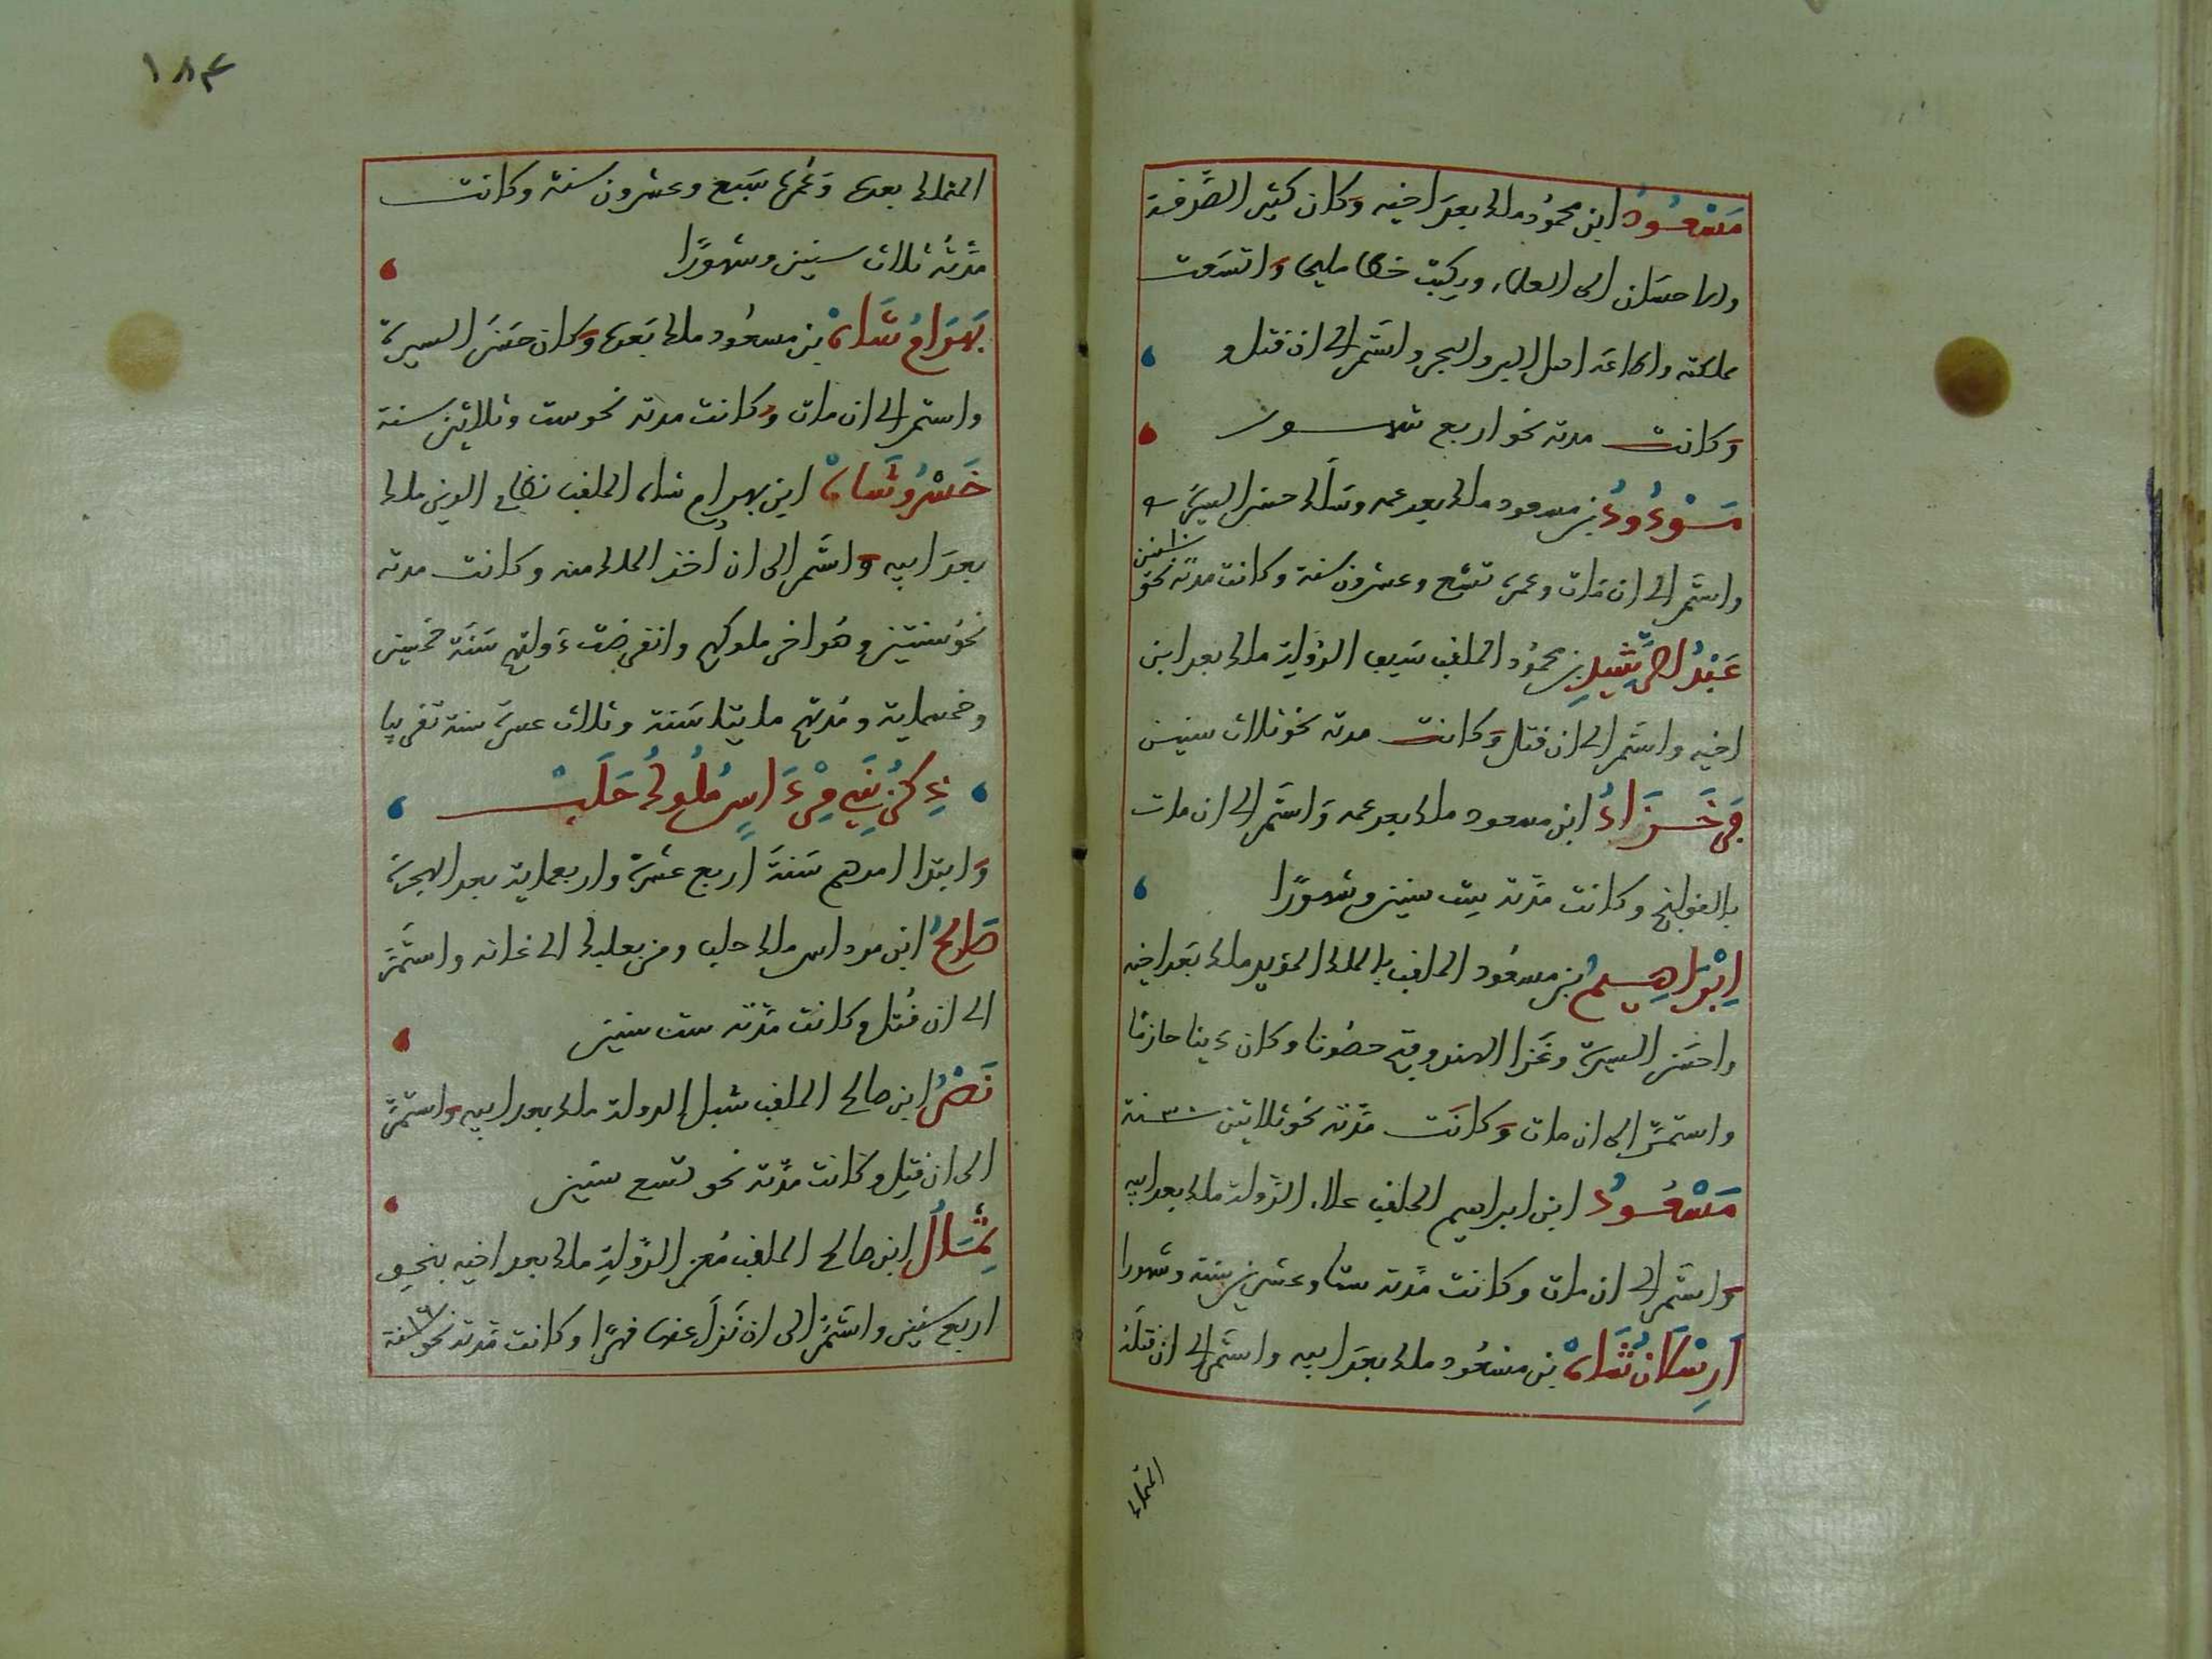 مَسْعُودُ ابن محمود ملك بعد اخيه وكان كثير الصَّدقة
والاحسان الى العلماء ويكتب خطا مليحا واتسَعت
مملكته واطاعه اهل البر والبحر واستَمر الى ان قتل و
وكانت مدته نحو اربع شهور
مَوْدُودُ بن مسعود ملك بعد عمه وسَلك حسن السيرة
واستَمر الى ان مَات وعمره تسْع وعشرون سنة وكانت مدّته نحو ١٠ سنين
عَبْدُ الرَّشِيدِ بن محمُود الملقب سَيف الدَّولة ملك بعد ابن
اخيه واستَمر الى ان قتل وَكانت مدته نحو ثلاث سنين
فَرخَزَادُ ابن مسعود ملك بعد عمه وَاستَمر الى ان مات
بالقولنج وكانت مدّته ست سنين وشهورًا
اِبْرَاهِيمُ بن مسعُود الملقب بالملك المؤيد ملك بَعد اخيه
واحسَن السيرة وغَزا الهند وفتح حصُونا وكان دينا حازمًا
واستمرّ الى ان مات وَكانَت مدّته نحو ثلاثين ٣٠ سنة
مَسْعُودُ ابن ابراهيم الملقب علاء الدَّولة ملك بعد ابيه
وَاستَمر الى ان مات وكانت مدّته ستا وعشرين سنة وشهورا
اَرسْلَانْ شَاهْ بن مسْعُود ملك بعَد ابيه واستَمر الى ان قتلَهُ
المتملك
١٨٤
المتملك بعده وَعُمره سَبع وعشرون سنة وكانت
مدَّتُه ثلاث سنين وشهورًا
بَهرَامُ شَاهْ بن مسعُود ملك بَعده وَكان حسَن السيرة
واستمر الى ان مات وَكانت مدته نحو ست وثلاثين سنة
خَسْرُوشَاهْ ابن بهرام شاه الملقب نظام الدين ملك
بعدَ ابيه وَاستَمر الى ان اخذ الملك منه وكانت مدته
نحو سنتين وهُو اخر ملوكهم وانقرضت دَولتهم سَنَة خمسين
وخمسماية ومُدتهم مايتا سَنة وثلاث عشرة سنة تقريبا
ذِكرُ بَنِي مِرْدَاسٍ مُلُوكُ حَلَبْ
وَابتدا امرهم سَنَة اربع عشرة واربعماية بعد الهجرة
صَالحُ ابن مرداس ملك حلب ومن بعلبك الى عانه واستَمَّر
الى ان قُتل وكانت مدَّته ست سنين
نَصْرُ ابن صالح الملقب شبل الدولة ملك بعد ابيه واستمرّ
الى ان قتِل وكانت مدَّته نحو تسع سنين
ثِمَالُ ابن صالح الملقب مُعز الدَّولةِ ملك بعد اخيه بنحو
اربع سنين واستَمرّ الى ان نَزلَ عنها قهرًا وكانت مدّته نحو ١٦ سنة